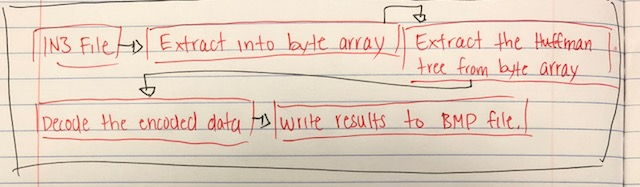 IN3 File
Extract into byte array
Extract the Huffman
tree from byte array
Decode the encoded data
Write results to BMP file.